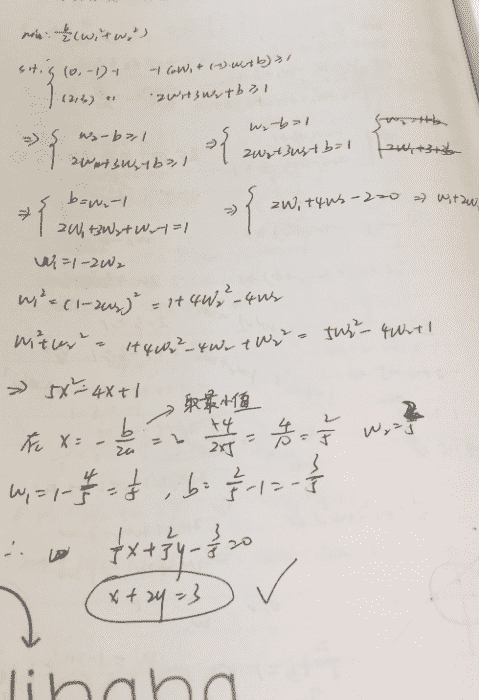 min: ½(w₁²+w₂²)
s.t. { (0,-1) -1   -1(0w₁+(-1)w₂+b)≥1
(2,3)   2w₁+3w₂+b≥1
⇒ { w₂-b≥1   ⇒ { w₂-b=1
2w₁+3w₂+b≥1   2w₂+3w₂+b=1   2w₁+3+3b
⇒ { b=w₂-1   ⇒ { 2w₁+4w₂-2=0 ⇒ w₁+2w₂
2w₁+3w₂+w₂-1=1
w₁=1-2w₂
w₁²=(1-2w₂)²=1+4w₂²-4w₂
w₁²+w₂²= 1+4w₂²-4w₂+w₂² = 5w₂²-4w₂+1
⇒ 5x²-4x+1
取最小值
在 x=-b/2a = +4/2×5 = 4/10 = 2/5   w₂=2/5
w₁=1-4/5=1/5 , b=2/5-1=-3/5
∴ 1/5x+2/5y-3/5=0
x+2y=3 ✓
libaba